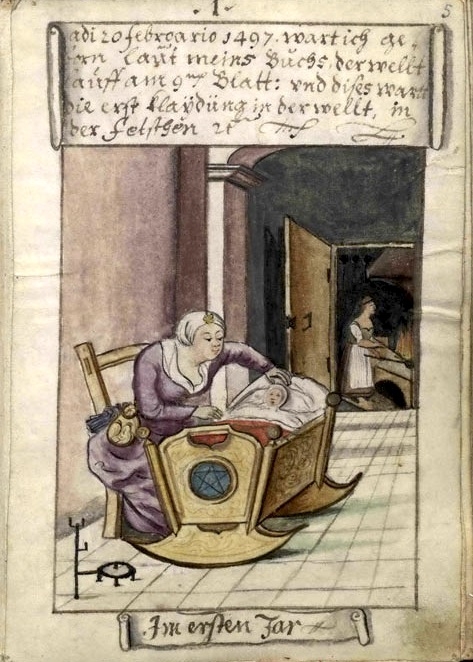 - 1 -
5
adi 20 febroario 1497. wart ich ge-
orn laut meins Buchs. der wellt
lauff am Blatt: vnd dises wart
die erst klaÿdung in der wellt, in
der Felschen
Im ersten Jar